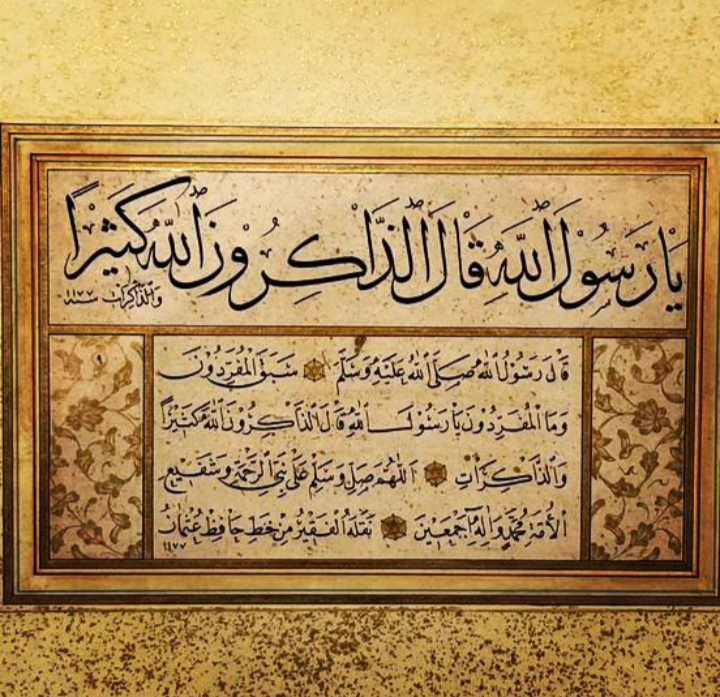 يَا رَسُولَ ٱللّٰهِ قَالَ ٱلذَّاكِرُونَ ٱللّٰهَ كَثِيرًا
وَالذَّاكِرَاتِ سنة ١١٧٧
قَالَ رَسُولُ اللّٰهِ صَلَّى اللّٰهُ عَلَيْهِ وَسَلَّمَ سَبَقَ الْمُفَرِّدُونَ
وَمَا الْمُفَرِّدُونَ يَا رَسُولَ اللّٰهِ قَالَ الذَّاكِرُونَ اللّٰهَ كَثِيرًا
وَالذَّاكِرَاتِ اَللّٰهُمَّ صَلِّ وَسَلِّمْ عَلَى نَبِيِّ الرَّحْمَةِ وَشَفِيعِ
الْأُمَّةِ مُحَمَّدٍ وَاٰلِهِ اَجْمَعِينَ نَقَلَهُ الْفَقِيرُ مِنْ خَطِّ حَافِظْ عُثْمَانْ
١١٧٧